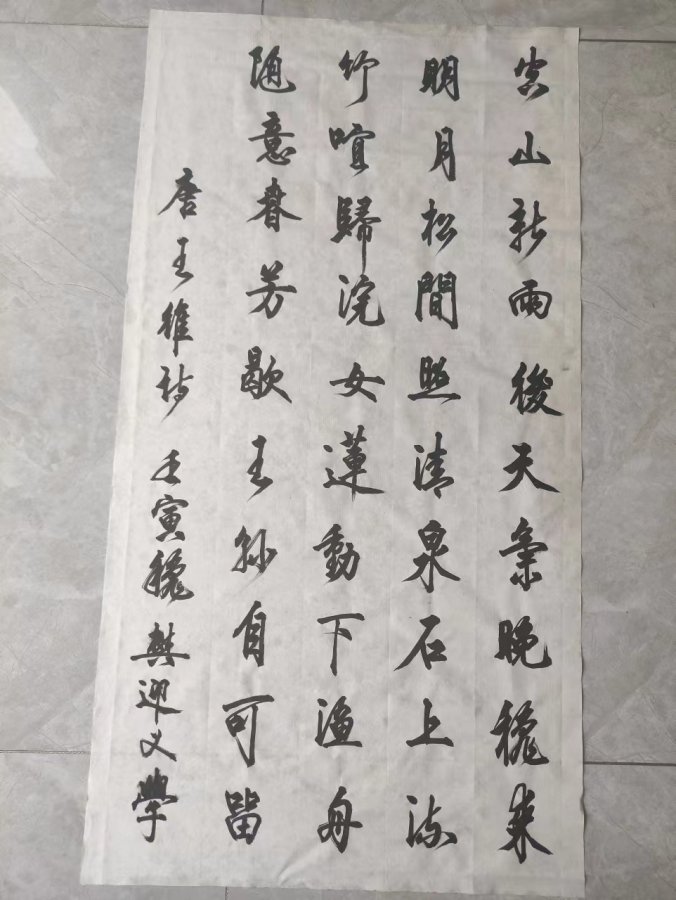 空山新雨後天氣晚龝來
明月松間照清泉石上流
竹喧歸浣女蓮動下漁舟
隨意春芳歇王孫自可留
唐王維詩 壬寅龝樊迎义學